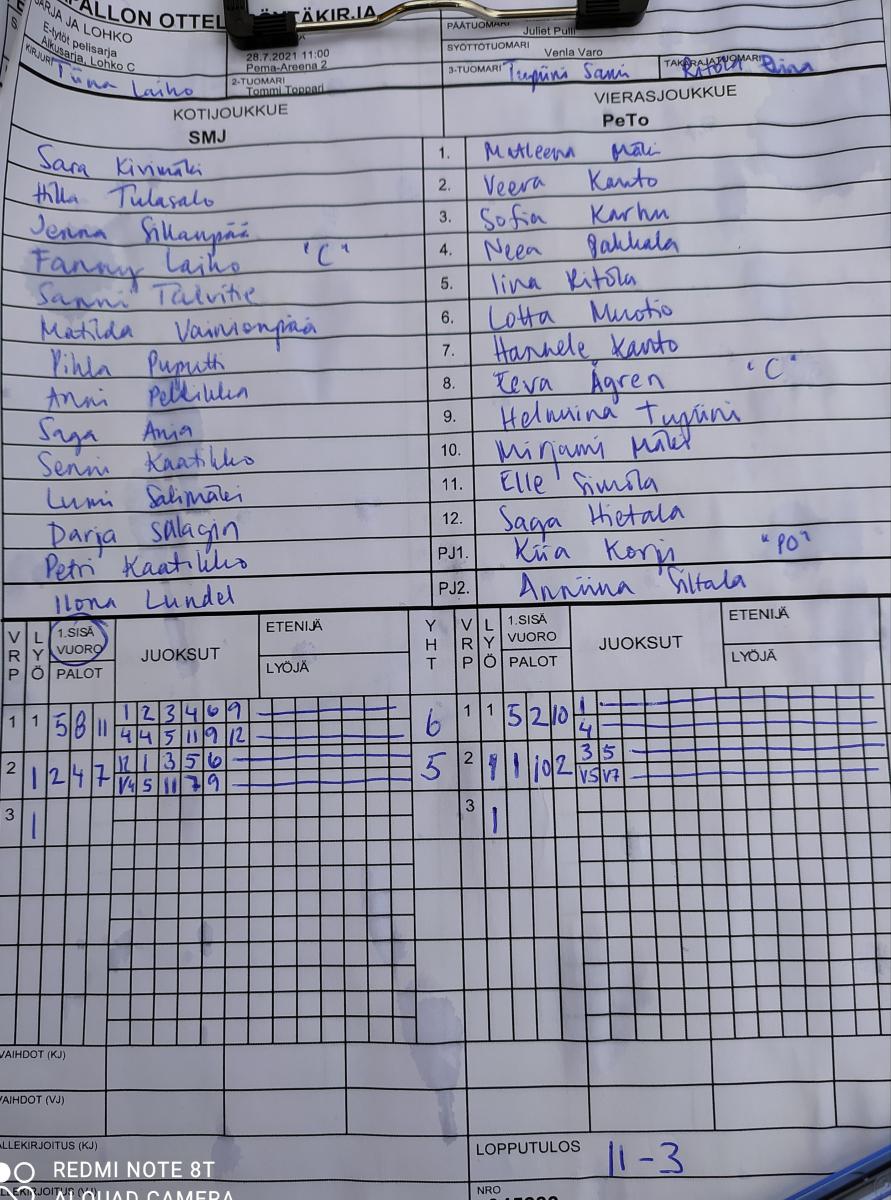 PALLON OTTEL
TÄKIRJA
SARJA JA LOHKO
E-tytöt pelisarja
Alkusarja, Lohko C
28.7.2021 11:00
Pema-Areena 2
PÄÄTUOMARI Juliet Pulli
SYÖTTÖTUOMARI Venla Varo
KIRJURI Tiina Laiho
2-TUOMARI Tommi Toppari
3-TUOMARI Tupiini Sani
TAKARAJATUOMARI Ritola
KOTIJOUKKUE VIERASJOUKKUE
SMJ PeTo
Sara Kivimäki 1. Matleena Mäki
Hilla Tulasalo 2. Veera Kanto
Jenna Sillanpää 3. Sofia Karhu
Fanny Laiho "C" 4. Neea Pakkala
Sanni Talvitie 5. Iina Ritola
Matilda Vainionpää 6. Lotta Muotio
Pihla Puputti 7. Hannele Kanto
Anni Pellikka 8. Eeva Ågren "C"
Saga Ania 9. Helmiina Tupiini
Senni Kaatikko 10. Mirjami Mäki
Lumi Salimäki 11. Elle Simola
Darja Salagin 12. Saga Hietala
Petri Kaatikko PJ1. Kiia Korpi "PO"
Ilona Lundel PJ2. Anniina Siltala
VRP LYÖ 1.SISÄ VUORO PALOT JUOKSUT ETENIJÄ LYÖJÄ YHT VRP LYÖ 1.SISÄ VUORO PALOT JUOKSUT ETENIJÄ LYÖJÄ
1 1 5 8 11 1 2 3 4 6 9 6 1 1 5 2 10 1
4 4 5 11 9 12 4
2 1 2 4 7 12 1 3 5 6 5 2 1 1 10 2 3 5
V4 5 11 7 9 V5 V7
3 1 3 1
VAIHDOT (KJ)
VAIHDOT (VJ)
ALLEKIRJOITUS (KJ) LOPPUTULOS 11-3
REDMI NOTE 8T
AI QUAD CAMERA
ALLEKIRJOITUS (VJ) NRO